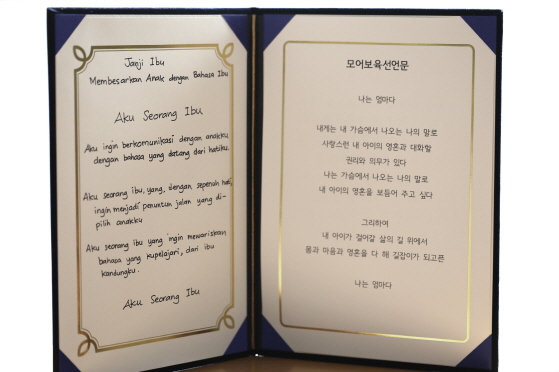 Janji Ibu
Membesarkan Anak dengan Bahasa Ibu
Aku Seorang Ibu
Aku ingin berkomunikasi dengan anakku,
dengan bahasa yang datang dari hatiku.
Aku seorang ibu, yang, dengan sepenuh hati,
ingin menjadi penuntun jalan yang di-
pilih anakku
Aku seorang ibu yang ingin mewariskan
bahasa yang kupelajari, dari ibu
kandungku.
Aku Seorang Ibu
모어보육선언문
나는 엄마다
내게는 내 가슴에서 나오는 나의 말로
사랑스런 내 아이의 영혼과 대화할
권리와 의무가 있다
나는 가슴에서 나오는 나의 말로
내 아이의 영혼을 보듬어 주고 싶다
그리하여
내 아이가 걸어갈 삶의 길 위에서
몸과 마음과 영혼을 다 해 길잡이가 되고픈
나는 엄마다